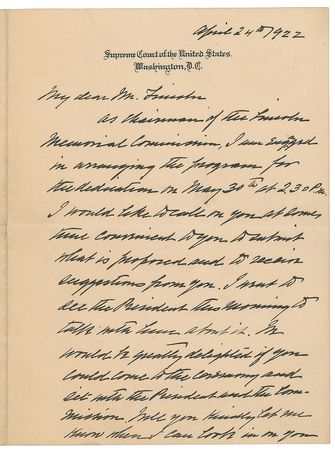 April 24th 1922
Supreme Court of the United States.
Washington, D.C.
My dear Mr. Lincoln
As Chairman of the Lincoln
Memorial Commission, I am engaged
in arranging the program for
the dedication on May 30th at 2.30 P.M.
I would like to call on you at some
time convenient to you to submit
what is proposed and to receive
suggestions from you. I went to
see the President this morning to
talk with him about it. We
would be greatly delighted if you
could come to the ceremony and
sit with the President and the Com-
mission. Will you kindly let me
know when I can look in on you